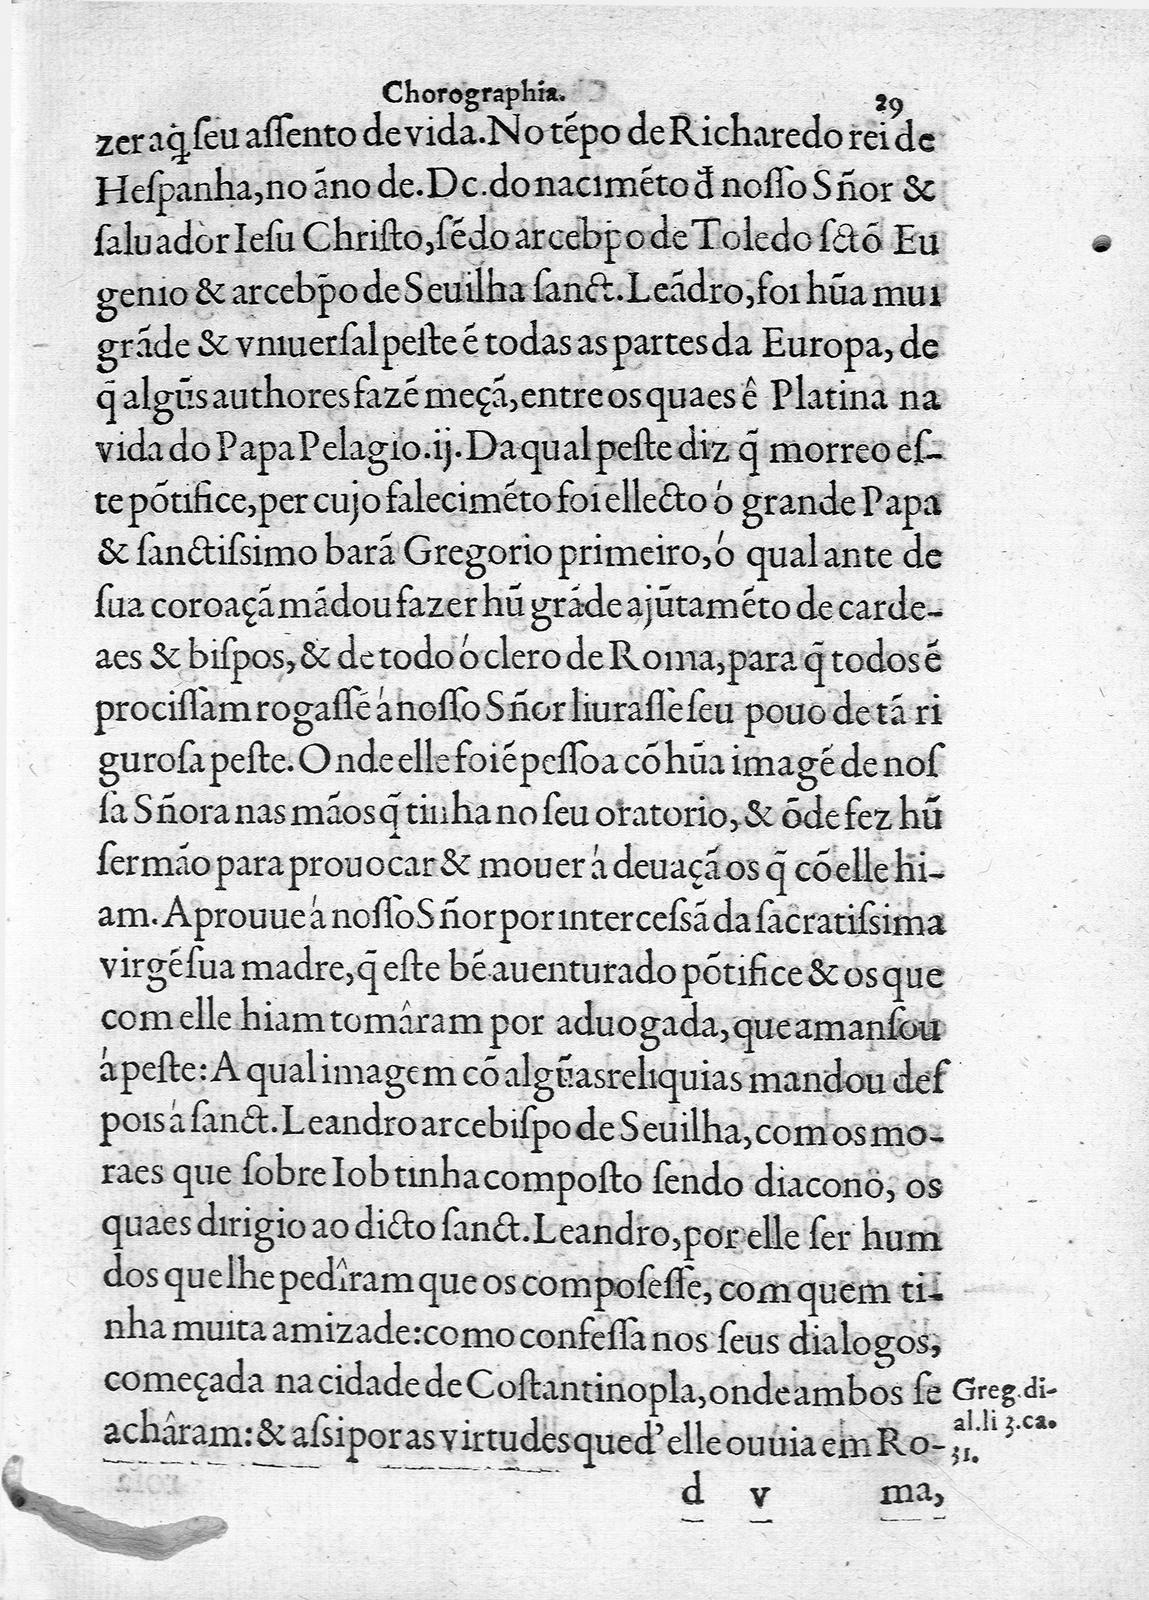 Chorographia. 29
zer aq̃ ſeu aſſento de vida. No tẽpo de Richaredo rei de
Heſpanha, no ãno de. Dc. do nacimẽto đ noſſo Sñor &
ſaluador Ieſu Chriſto, ſẽdo arcebp̃o de Toledo ſctõ Eu
genio & arcebp̃o de Seuilha ſanct. Leãdro, foi hũa mui
grãde & vniuerſal peſte ẽ todas as partes da Europa, de
q̃ algũs authores fazẽ meçã, entre os quaes ê Platina na
vida do Papa Pelagio. ij. Da qual peſte diz q̃ morreo eſ-
te põtifice, per cujo falecimẽto foi ellecto ó grande Papa
& ſanctiſsimo barã Gregorio primeiro, ó qual ante de
ſua coroaçã mãdou fazer hũ grãde ajũtamẽto de carde-
aes & biſpos, & de todo ó clero de Roma, para q̃ todos ẽ
prociſſam rogaſſẽ á noſſo Sñor liuraſſe ſeu pouo de tã ri
guroſa peſte. Onde elle foi ẽ peſſoa cõ hũa imagẽ de noſ
ſa Sñora nas mãos q̃ tinha no ſeu oratorio, & õde fez hũ
ſermão para prouocar & mouer á deuaçã os q̃ cõ elle hi-
am. Aprouue á noſſo Sñor por interceſsã da ſacratiſsima
virgẽ ſua madre, q̃ eſte bẽauenturado põtifice & os que
com elle hiam tomâram por aduogada, que amanſou
á peſte: A qual imagem cõ algũas reliquias mandou deſ
pois á ſanct. Leandro arcebiſpo de Seuilha, com os mo-
raes que ſobre Iob tinha compoſto ſendo diacono, os
quaes dirigio ao dicto ſanct. Leandro, por elle ſer hum
dos que lhe pedîram que os compoſeſſe, com quem ti-
nha muita amizade: como confeſſa nos ſeus dialogos,
começada na cidade de Coſtantinopla, onde ambos ſe
achâram: & aſsi por as virtudes que d' elle ouuia em Ro-
Greg. di-
al. li 3. ca.
31.
d v ma,